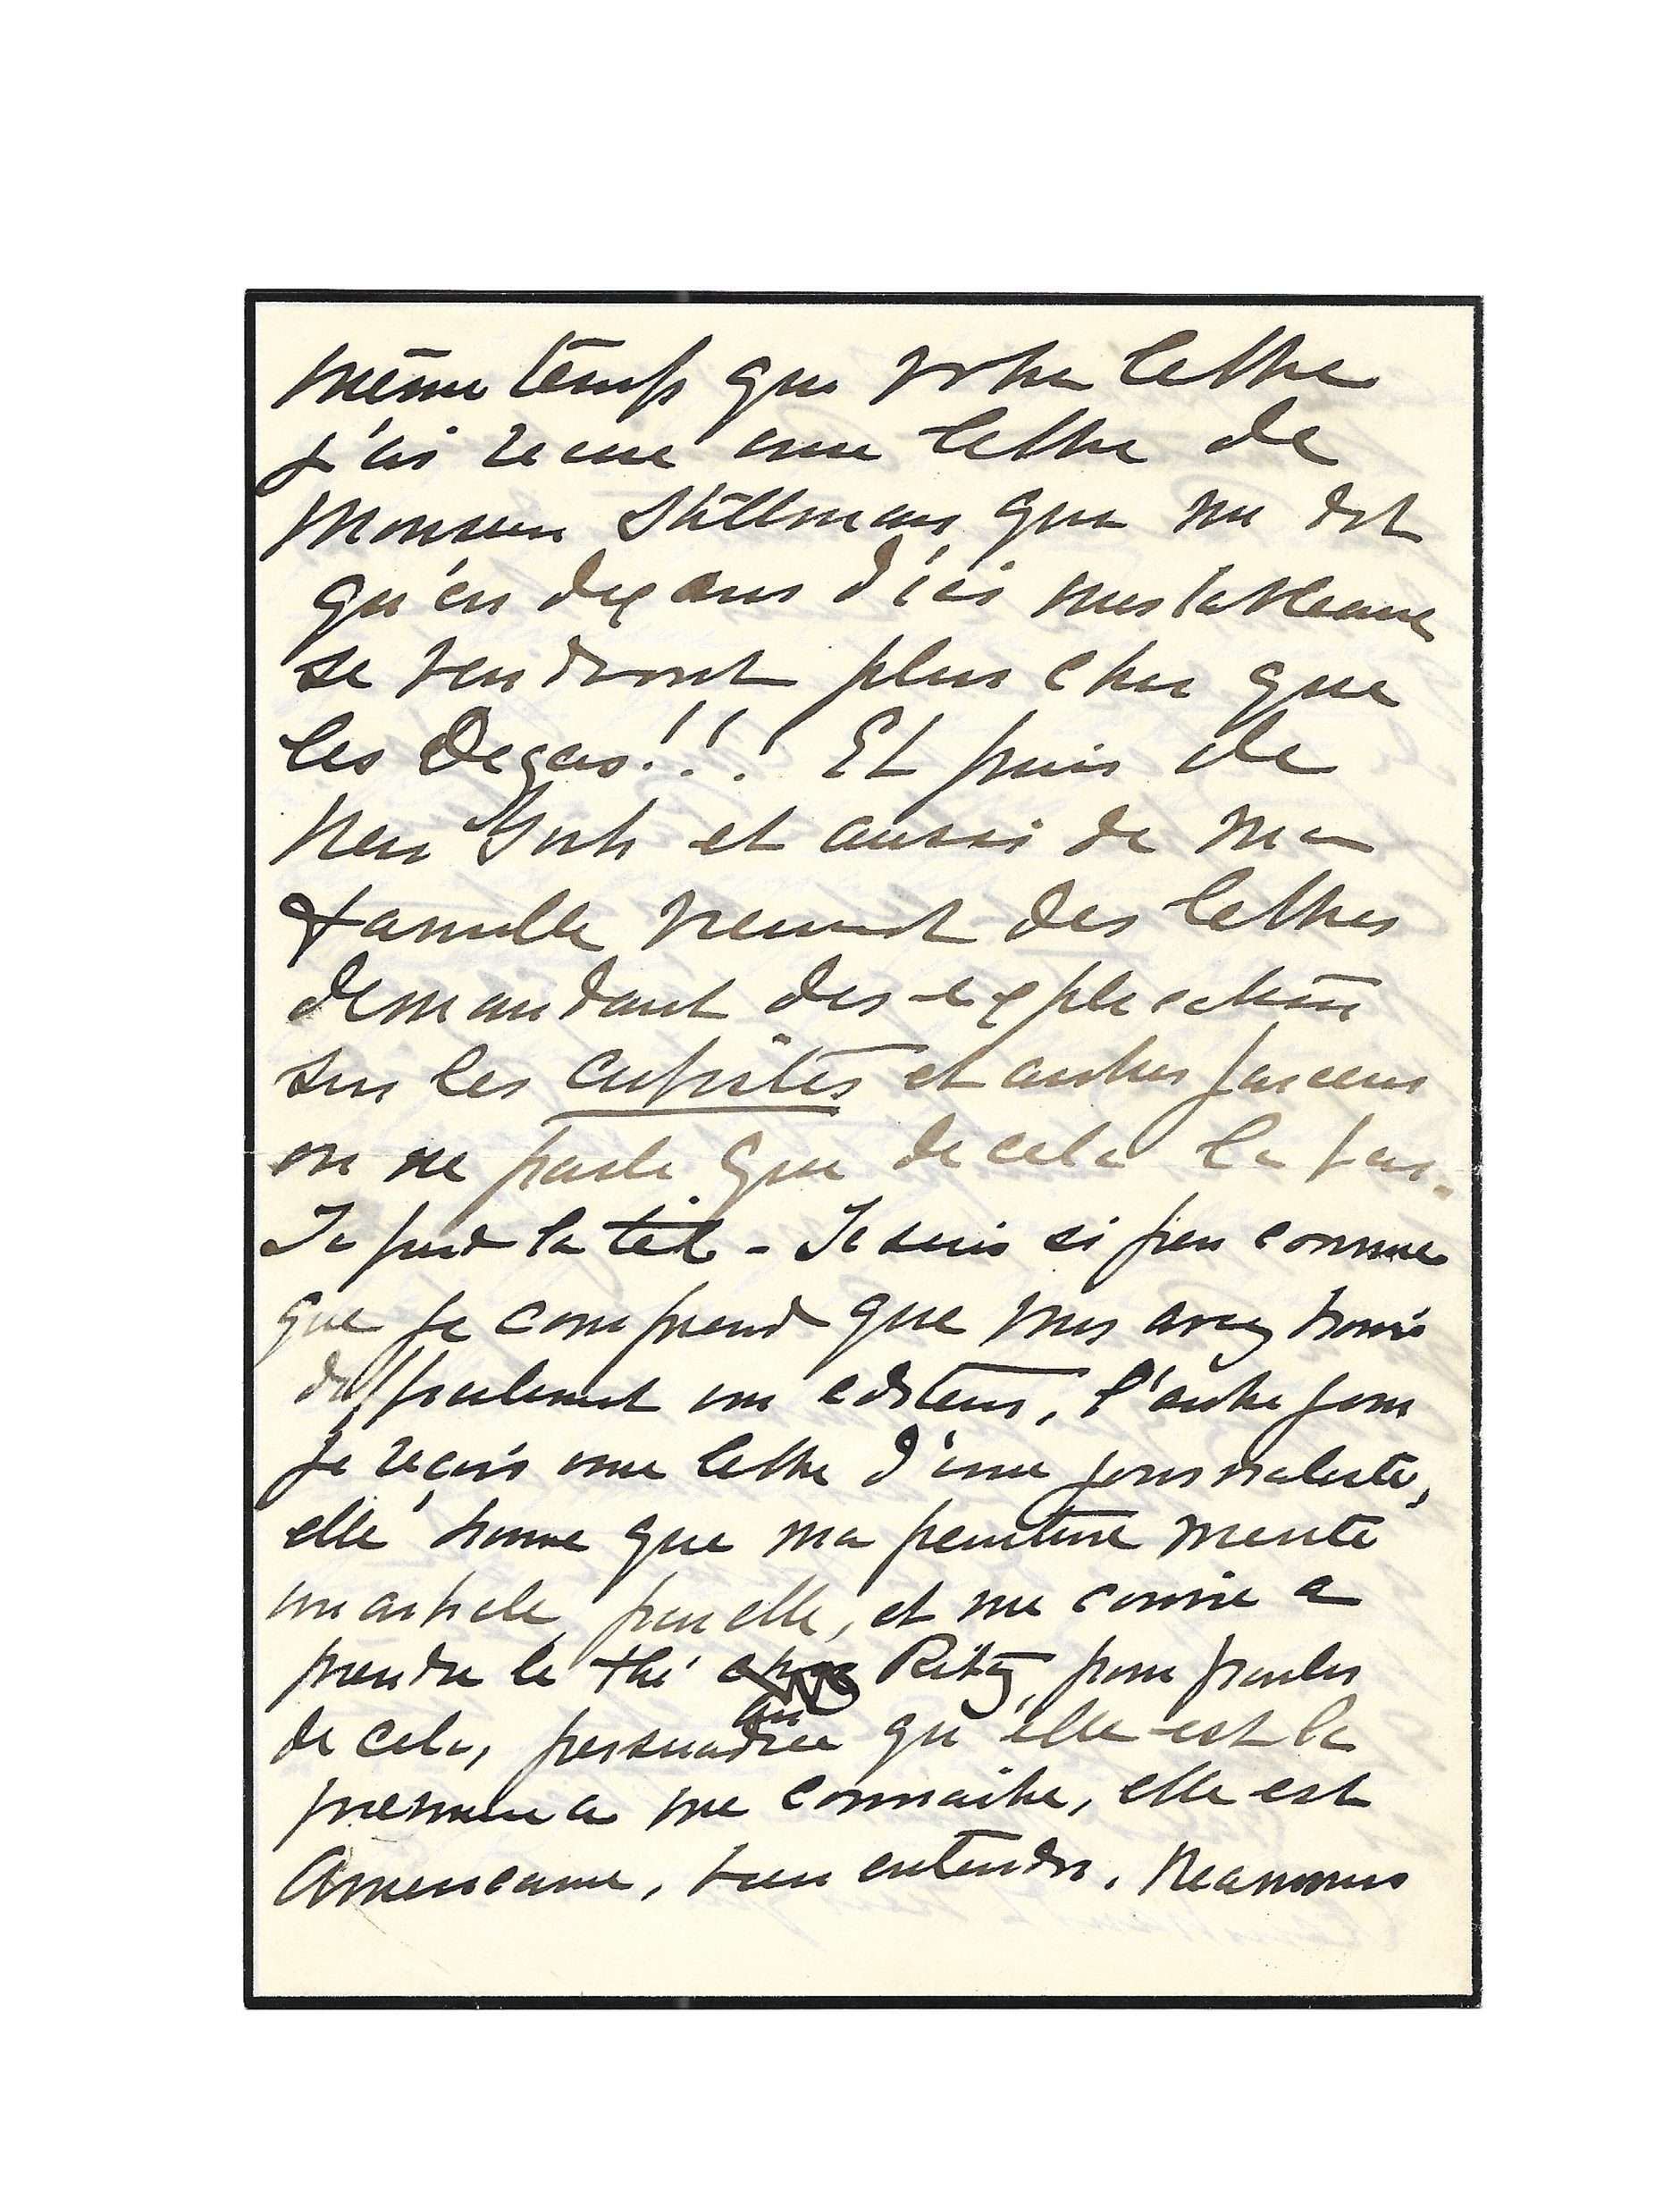 même temps que votre lettre
j'ai recue une lettre de
Monsieur Stillman que me dit
qu'en dix ans d'ici mes tableaux
se vendront plus cher que
les Degas!!! Et puis de
New York et aussi de ma
famille vienent des lettres
demandant des explication
sur les cubistes et autres farceurs
on ne parle que de cela la bas.
Je perd la tête - Je suis si peu connue
que je comprend que vous avez trouvé
difficilement un editeur, l'autre jour
je reçois une lettre d'une journaliste,
elle trouve que ma peinture merite
un article par elle, et me convie a
prendre le thé au Ritz, pour parler
de cela, persuadée qu'elle est la
premiere a me connaitre, elle est
Americaine, bien entendu. Neanmoins